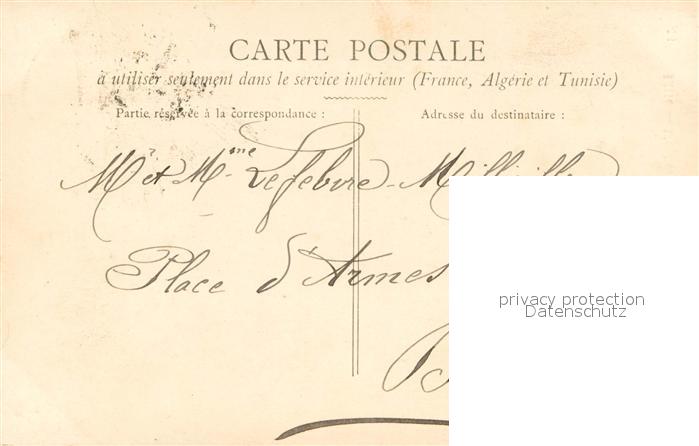 CARTE POSTALE
à utiliser seulement dans le service intérieur (France, Algérie et Tunisie)
Partie réservée à la correspondance :
Adresse du destinataire :
Mr et Mme Lefebvre-
Place d'Armes
privacy protection
Datenschutz